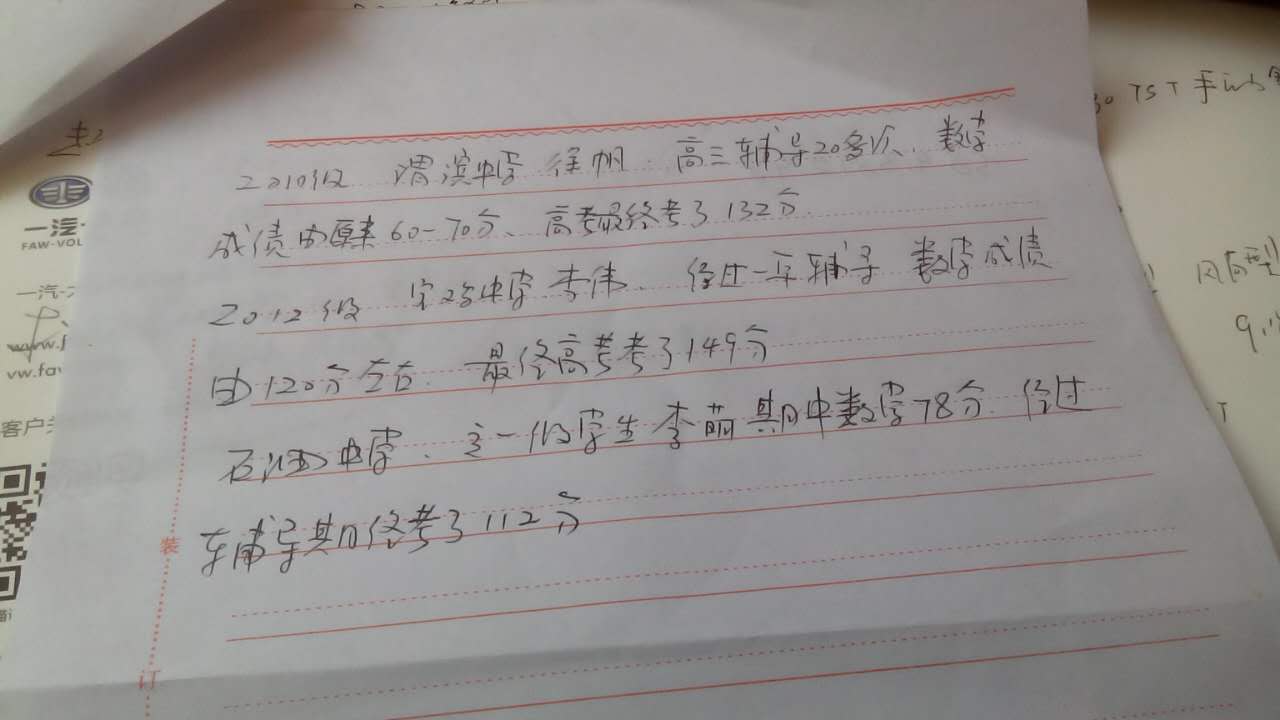 2010级 渭滨中学 徐帆. 高三辅导20多次、数学
成绩由原来60-70分、高考最终考了132分.
2012级 中学 李伟、经过一年辅导 数学成绩
由120分左右. 最终高考考了149分
石油中学、高一级学生李萌期中数学78分. 经过
辅导期终考了112分
装
订
一汽-
FAW-VOL
一汽-大
www.f
vw.fav
客户
TST手动
风尚型